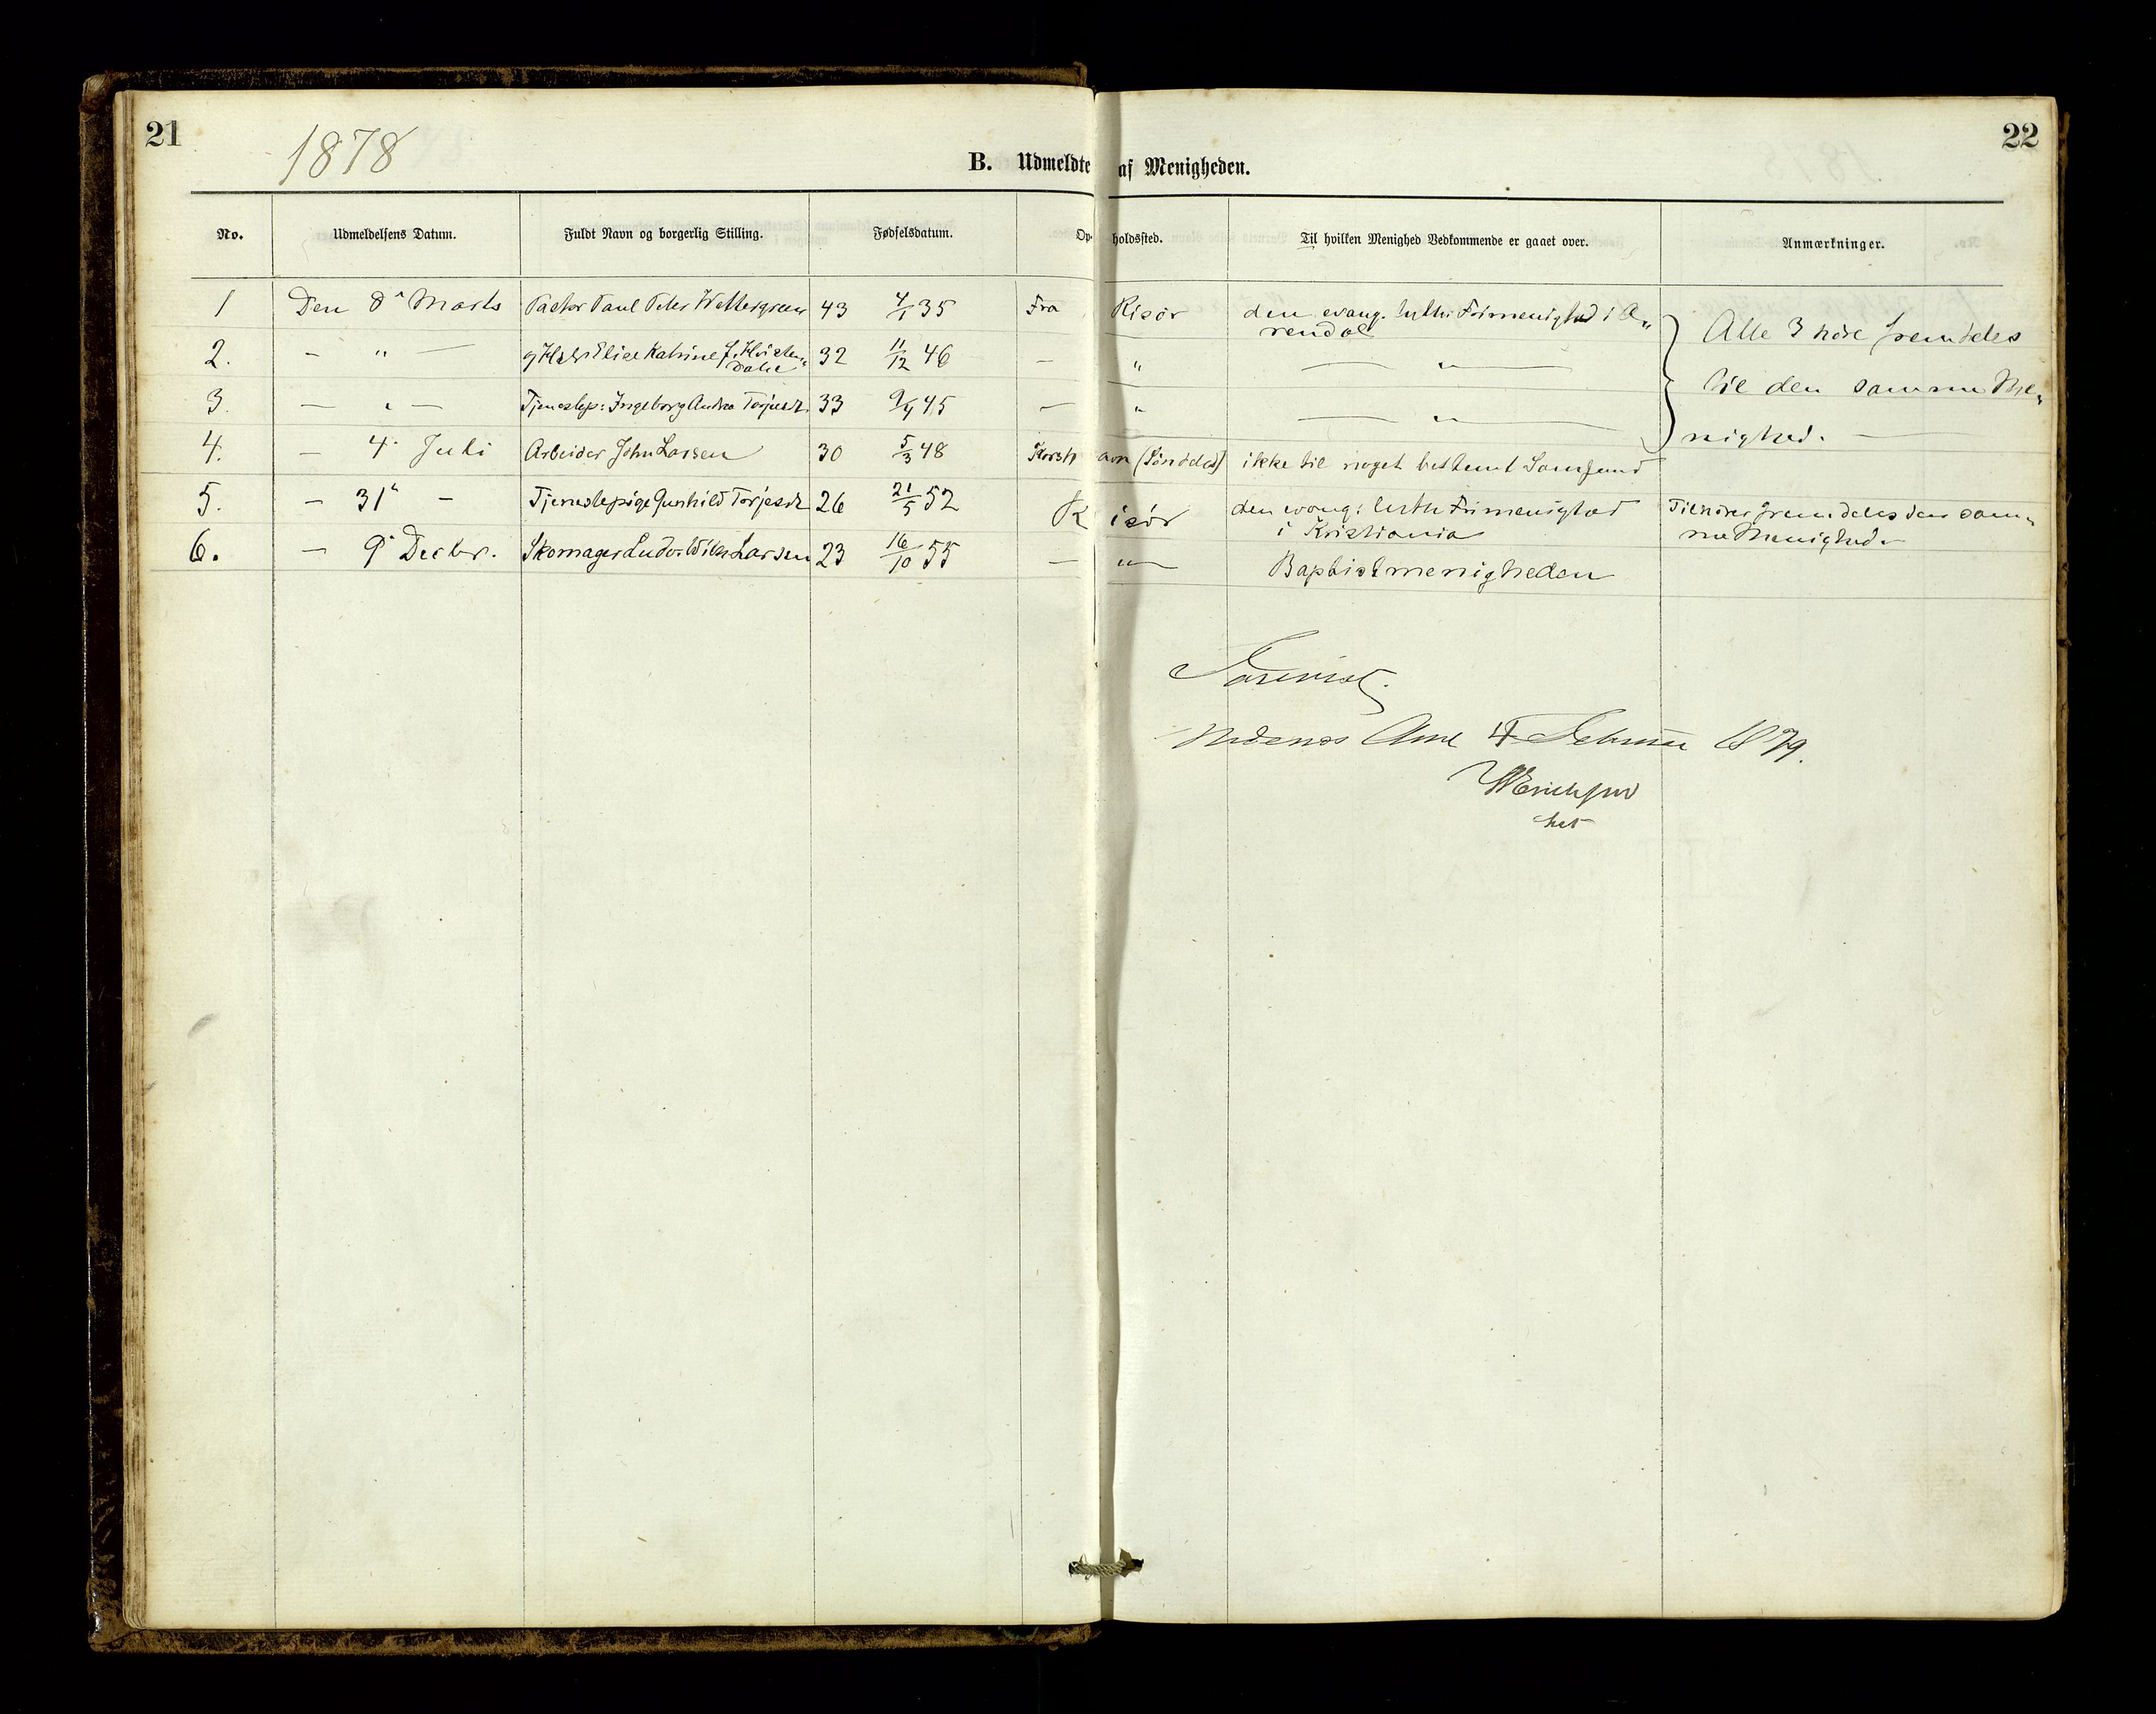 21
1878
22
B. Udmeldte af Menigheden.
No. Udmeldelsens Datum. Fuldt Navn og borgerlig Stilling. Fødselsdatum. Opholdssted. Til hvilken Menighed Vedkommende er gaaet over. Anmærkninger.
1 Den 8 Marts Pastor Paul Peter Wettergreen 43 4/1 35 Fra Risör den evang. luth. Frimenighed i A„
rendal
Alle 3 höre fremdeles
2. — " — Elise Katrine f. 32 11/12 46 — " — " —
Dahl
til den samme Me„
3. — " — Tjenestep: Ingeborg Andrea Torjesdt. 33 9/4 45 — " — " —
nighed. —
4. — 4. Juli Arbeider John Larsen 30 5/3 48 Korshavn (Söndeled) ikke til noget bestemt Samfund
5. — 31 — Tjenestepige Gunhild Torjesdt 26 21/5 52 Risör den evang: luth Frimenighed
i Kristiania
Tilhörer fremdeles den sam„
me Menighed.
6. — 9 Decbr. Skomager Ludv. Wilh. Larsen 23 16/10 55 — " — Baptistmenigheden
Forevist.
Nedenæs Amt 4 Februar 1879.